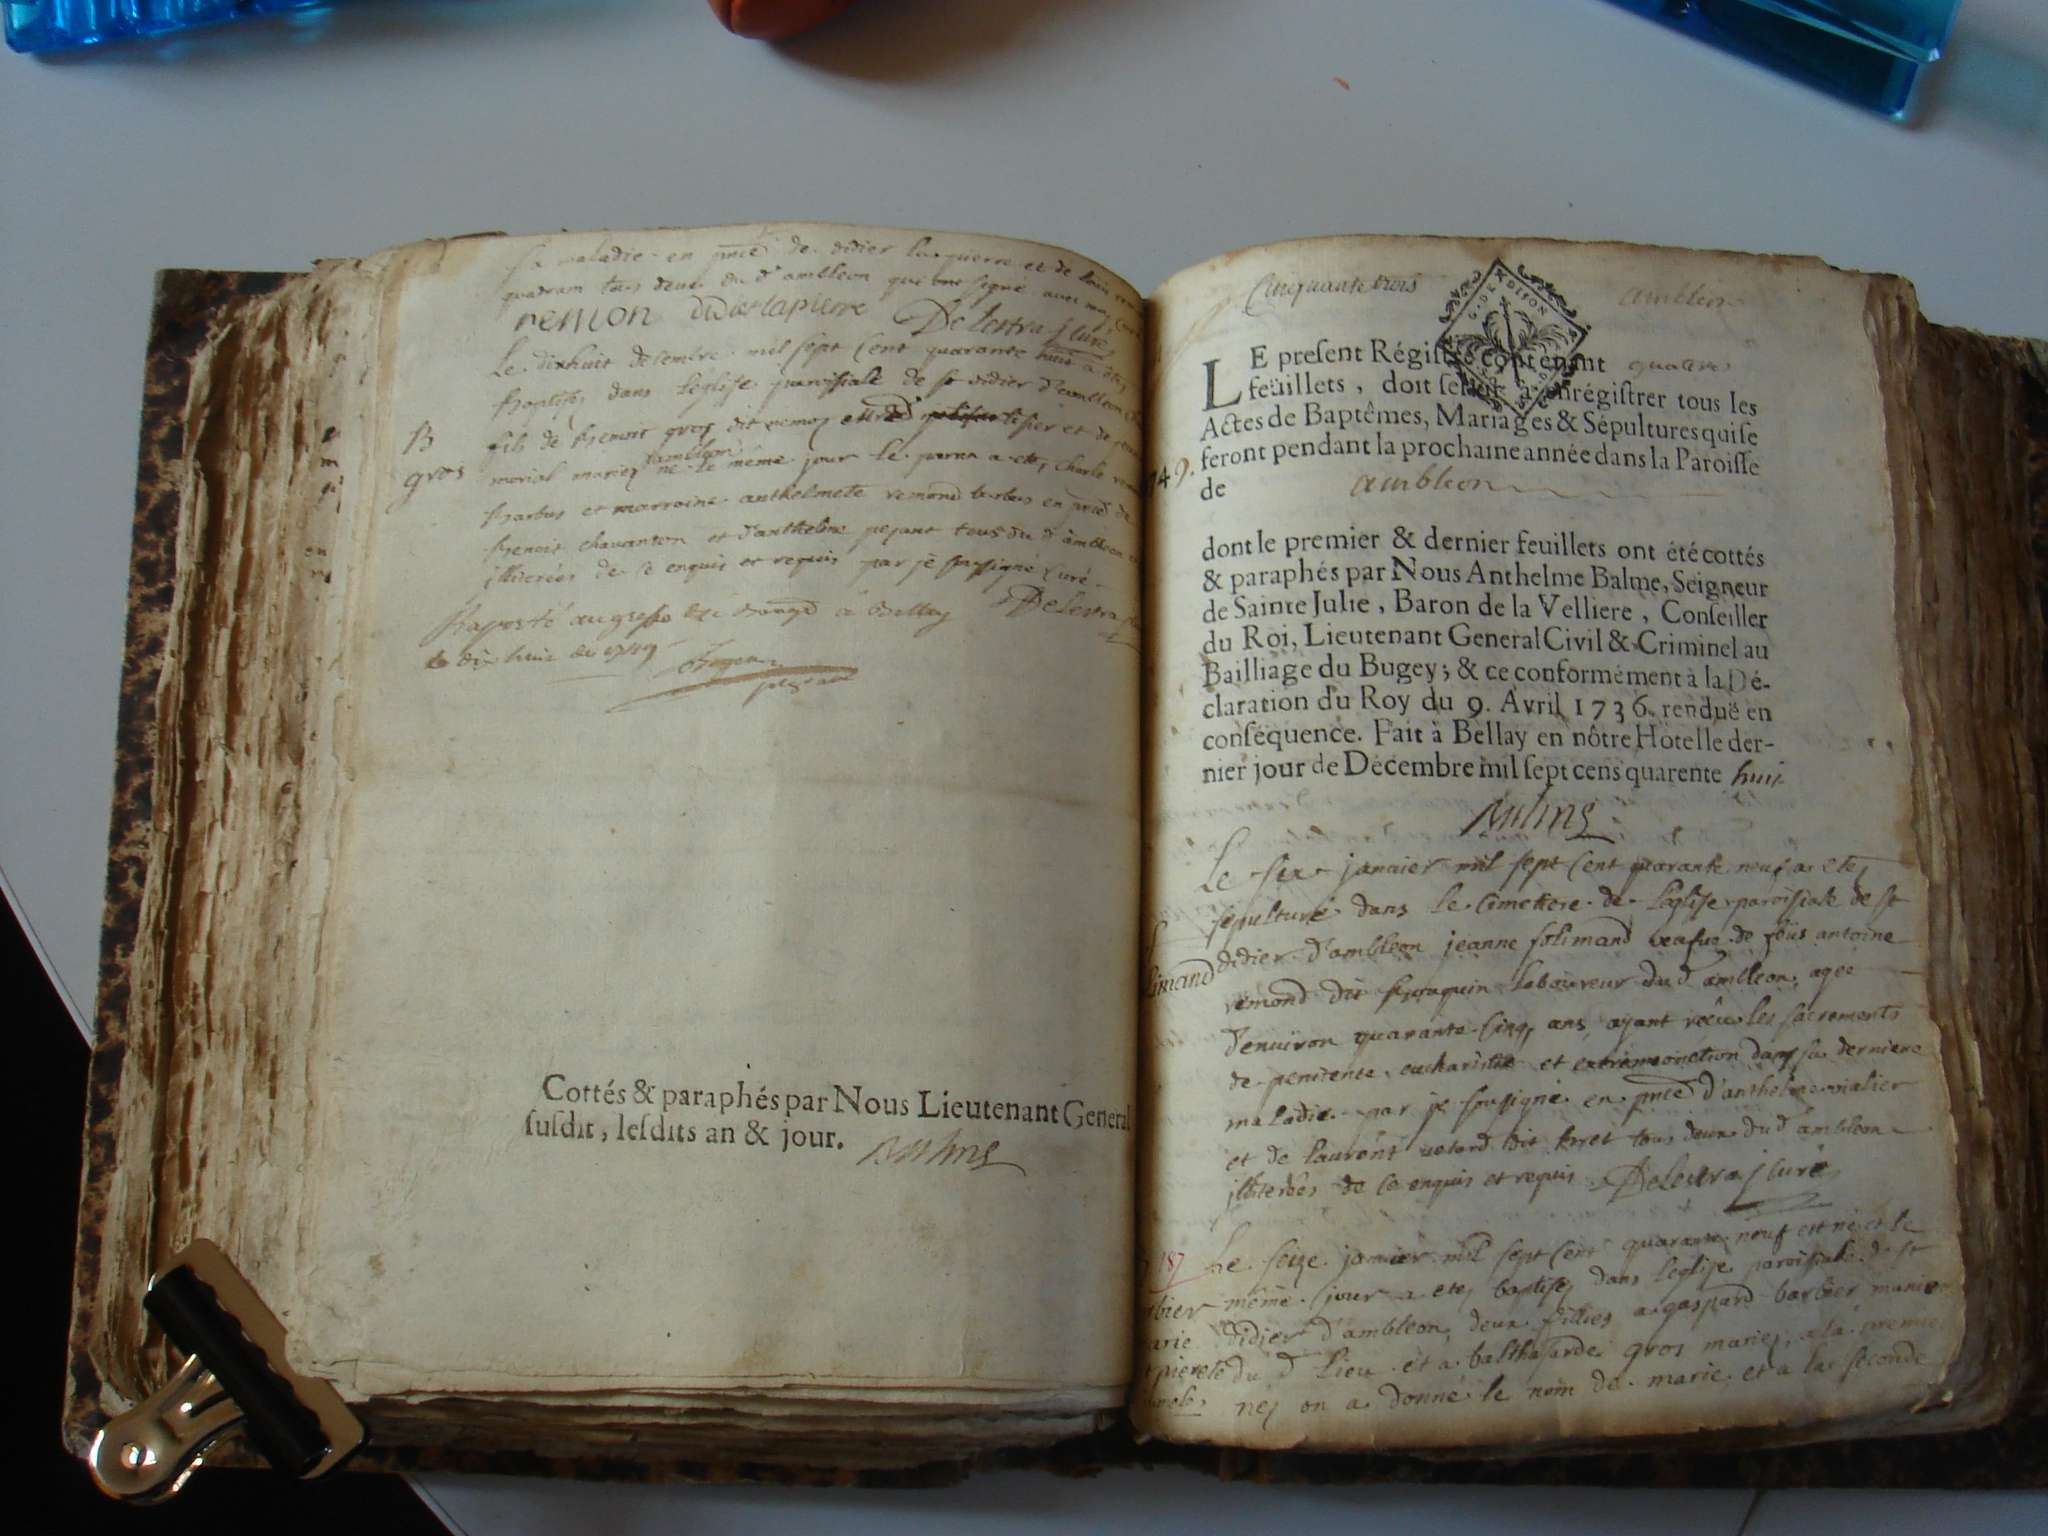 sa maladie en pnce de didier la pierre et de
quadram tous deux du d ambleon qui ont signé avec moy
remon didier lapierre Delestra Curé
Le dixhuit decembre mil sept Cent quarante huit a eté
baptisé dans Leglise paroissiale de st didier d'ambleon
B
gros
fils de benoit gros dit remoz tisier et de
ambleon
morial mariez né le même jour le parrain a eté Charle
barbus et marraine anthelmete remond barbus en pnce de
benoit chavanton et d'anthelme pesant tous du d ambleon
illiterées de ce enquis et requis par je soussigné Curé
Delestra
Raporté au greffe du Bailliage à Belley
le dix huit 1749
Cottés & paraphés par Nous Lieutenant General
susdit, lesdits an & jour. Balme
Cinquante trois
ambleon
G. DE DIJON
LE present Régistre contenant quatre
feüillets, doit servir à enrégistrer tous les
Actes de Baptêmes, Mariages & Sépultures qui se
feront pendant la prochaine année dans la Paroisse
749.
de ambleon
dont le premier & dernier feuillets ont été cottés
& paraphés par Nous Anthelme Balme, Seigneur
de Sainte Julie, Baron de la Velliere, Conseiller
du Roi, Lieutenant General Civil & Criminel au
Bailliage du Bugey; & ce conformément à la Dé-
claration du Roy du 9. Avril 1736. renduë en
conséquence. Fait à Bellay en nôtre Hotel le der-
nier jour de Décembre mil sept cens quarente huit
Balme
Le six janvier mil sept Cent quarante neuf a eté
sepulturé dans Le Cimetiere de Leglise paroissiale de st
didier d'ambleon jeanne solimand veafue de feus antoine
limand
remond dit Laboureur du d ambleon, agée
d'environ quarante Cinq ans ayant reçu les sacrements
de penitence eucharistie et extremeonction dans sa derniere
maladie par je soussigné en pnce d'anthelme vialier
et de laurent vetard dit tous deux du d ambleon
illiterées de Ce enquis et requis Delestra Curé
187
Le seize janvier mil sept Cent quarante neuf est né et le
même jour a eté baptisé dans leglise paroissiale de st
bier
didier d'ambleon, deux filles a gaspard barbier
arie
pierete du d Lieu et a balthasarde gros mariez, a la
nez on a donné le nom de marie et a la seconde